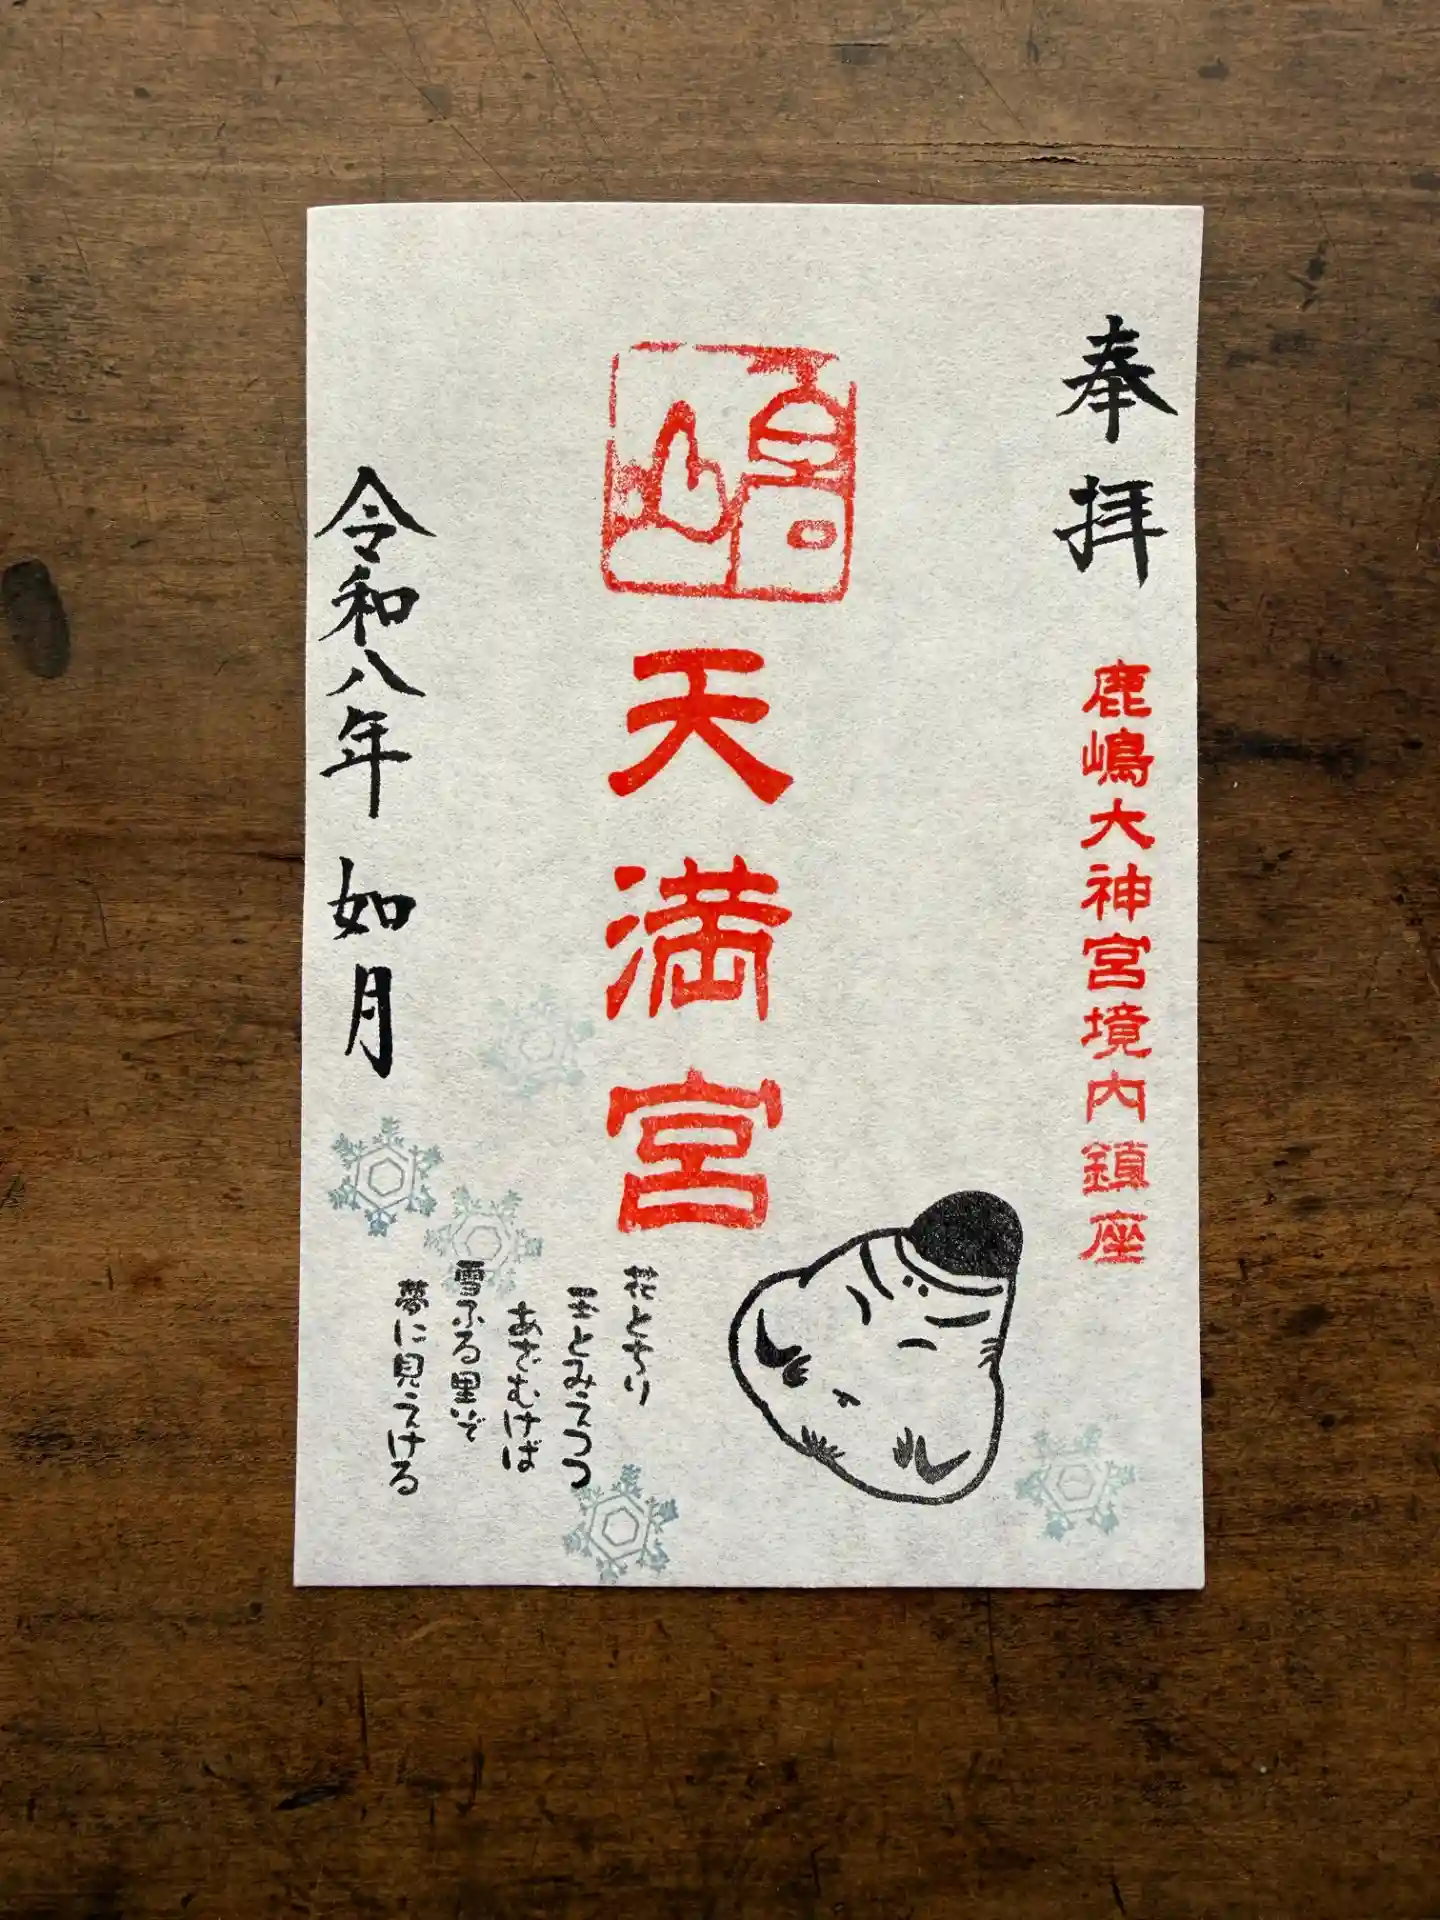 奉拝
鹿嶋大神宮境内鎮座
天満宮
花とちり
玉とみえつつ
あざむけば
雪ふる里ぞ
夢に見えける
令和八年 如月